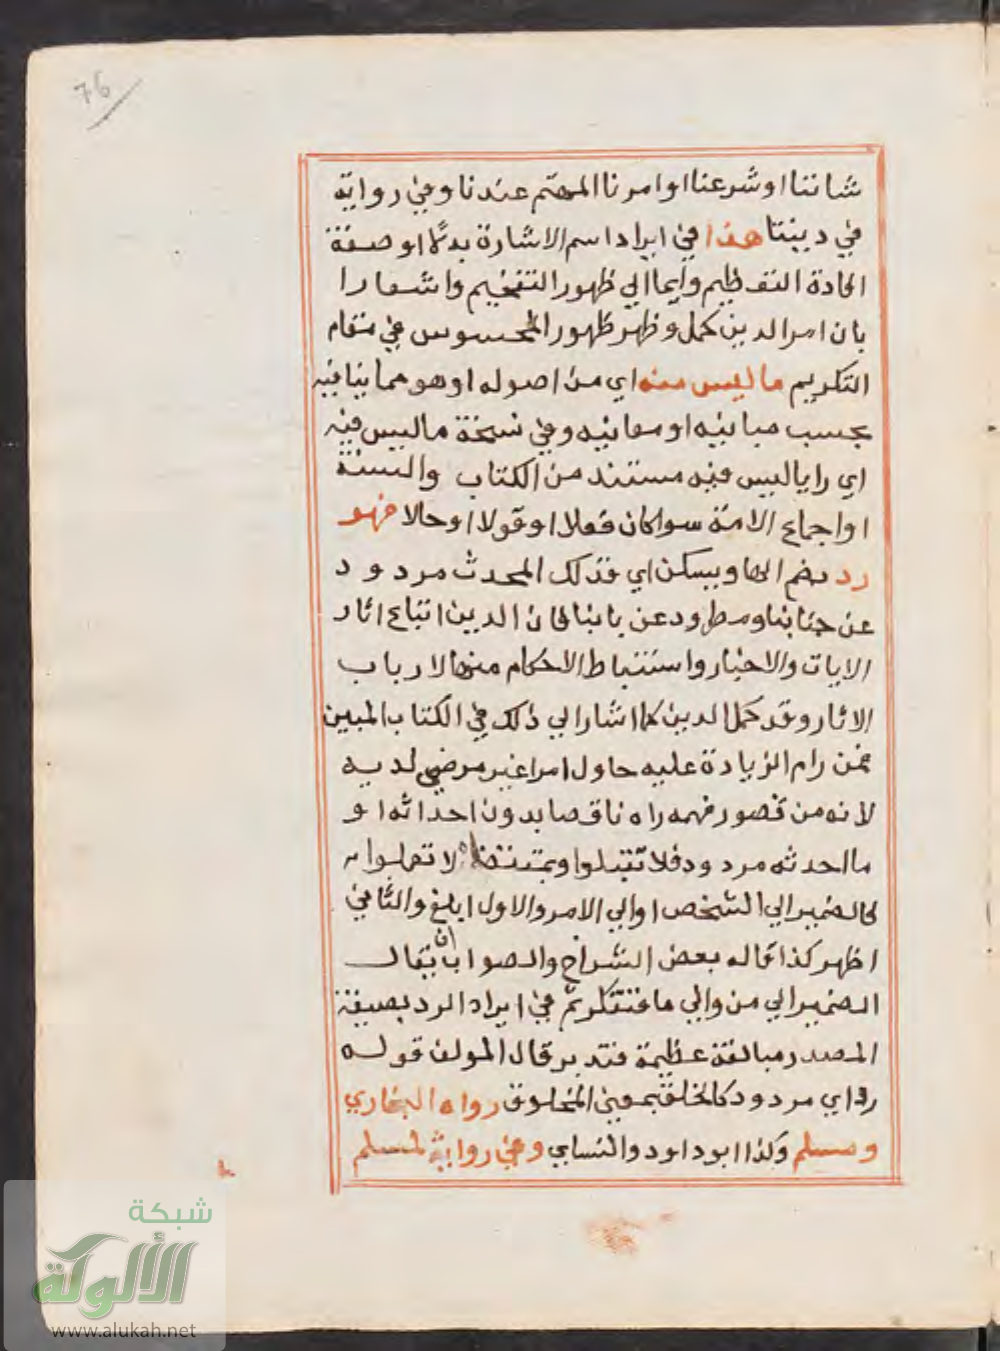 76
شاننا او شرعنا او امرنا المهتم عندنا وفي رواية
في ديننا هذا في ايراد اسم الاشارة بدلا او صفة
لافادة التعظيم وايما الي ظهور التفخيم واشعارا
بان امر الدين كمل وظهر ظهور المحسوس في مقام
التكريم ما ليس منه اي من اصوله او هو مما ينافيه
بحسب مبانيه او معانيه وفي نسخة ما ليس فيه
اي رايا ليس فيه مستند من الكتاب والسنة
او اجماع الامة سوا كان فعلا او قولا او حالا فهو
رد بضم الها ويسكن اي فذلك المحدث مردود
عن جنابنا ومطرود عن بابنا فان الدين اتباع اثار
الايات والاخبار واستنباط الاحكام منها لارباب
الاثار وقد كمل الدين كما اشار الي ذلك في الكتاب المبين
فمن رام الزيادة عليه حاول امرا غير مرضي لديه
لانه من قصور فهمه راه ناقصا بدون احداثه او
ما احدثه مردود فلا تقبلوا وبمقتضاه لا تعملوا به
فالضمير الي الشخص او الي الامر والاول ابلغ والثاني
اظهر كذا قاله بعض الشراح والصواب ان يقال
الضمير الي من والي ما فتفكر ثم في ايراد الرد بصيغة
المصدر مبالغة عظيمة فتدبر قال المولف قوله
رد اي مردود كالخلق بمعني المخلوق رواه البخاري
ومسلم وكذا ابو داود والنسايي وفي رواية لمسلم
شبكة
الألوكة
www.alukah.net